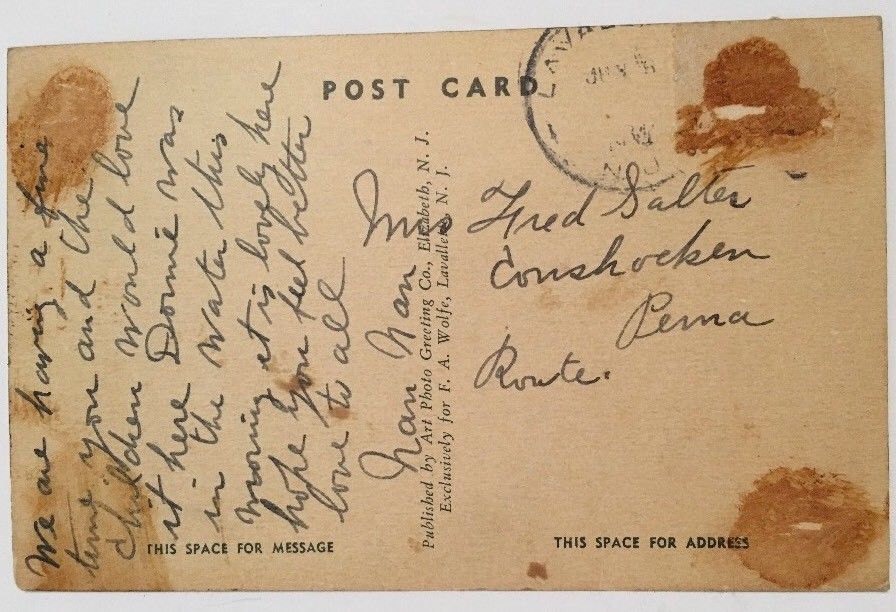 POST CARD
LAVALLE
N.J.
We are having a fine
time you and the
children would love
it here Donnie was
in the water this
morning it is lovely here
hope you feel better
love to all
Nan Nan
Published by Art Photo Greeting Co., Elizabeth, N. J.
Exclusively for F. A. Wolfe, Lavallette, N. J.
Mrs Fred Salter
Conshocken
Penna
Route.
THIS SPACE FOR MESSAGE
THIS SPACE FOR ADDRESS